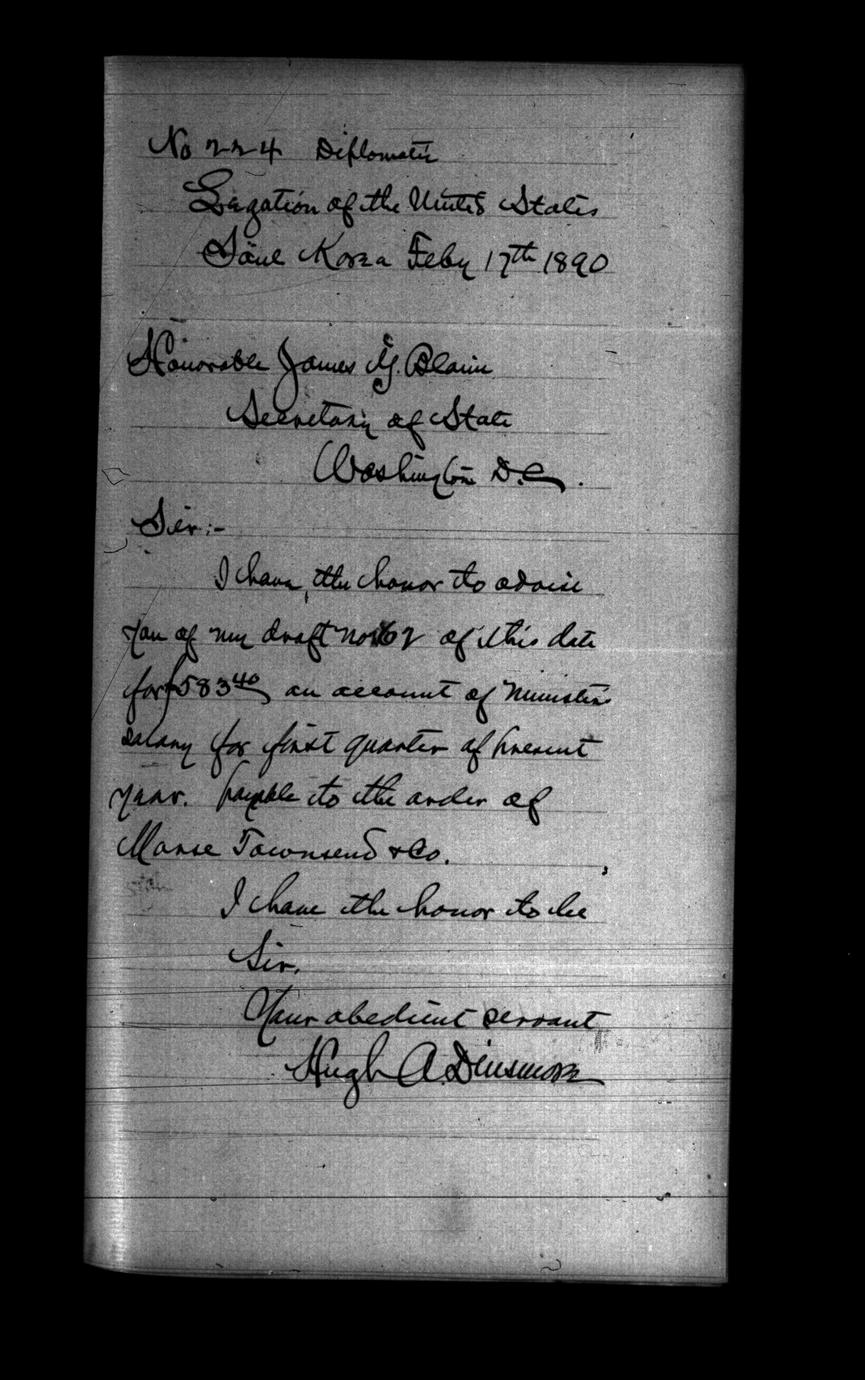 No 224 Diplomatic
Legation of the United States
Söul Korea Feby 17th 1890
Honorable James G. Blaine
Secretary of State
Washington D.C.
Sir:-
I have, the honor to advise
you of my draft No 162 of this date
for $583 40 on account of Minister's
salary for first quarter of present
year. payable to the order of
Morse Townsend & Co.
I have the honor to be
Sir,
Your obedient servant
Hugh A. Dinsmore